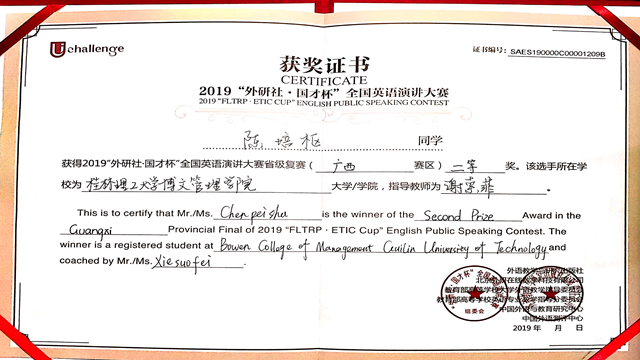 Uchallenge
证书编号：SAES190000C00001209B
获奖证书
CERTIFICATE
2019“外研社·国才杯”全国英语演讲大赛
2019 "FLTRP · ETIC CUP" ENGLISH PUBLIC SPEAKING CONTEST
陈培枢 同学
获得2019“外研社·国才杯”全国英语演讲大赛省级复赛（ 广西 赛区）二等 奖。该选手所在学
校为 桂林理工大学博文管理学院 大学/学院，指导教师为 谢索菲。
This is to certify that Mr./Ms. Chenpeishu is the winner of the Second Prize Award in the
Guangxi Provincial Final of 2019 "FLTRP · ETIC Cup" English Public Speaking Contest. The
winner is a registered student at Bowen College of Management Guilin University of Technology and
coached by Mr./Ms. Xiesuofei.
外语教学与研究出版社
教育部高等学校大学外语教学指导委员会
教育部高等学校英语专业教学指导分委员会
中国外语与教育研究中心
中国外语测评中心
组委会
2019 年 月 日